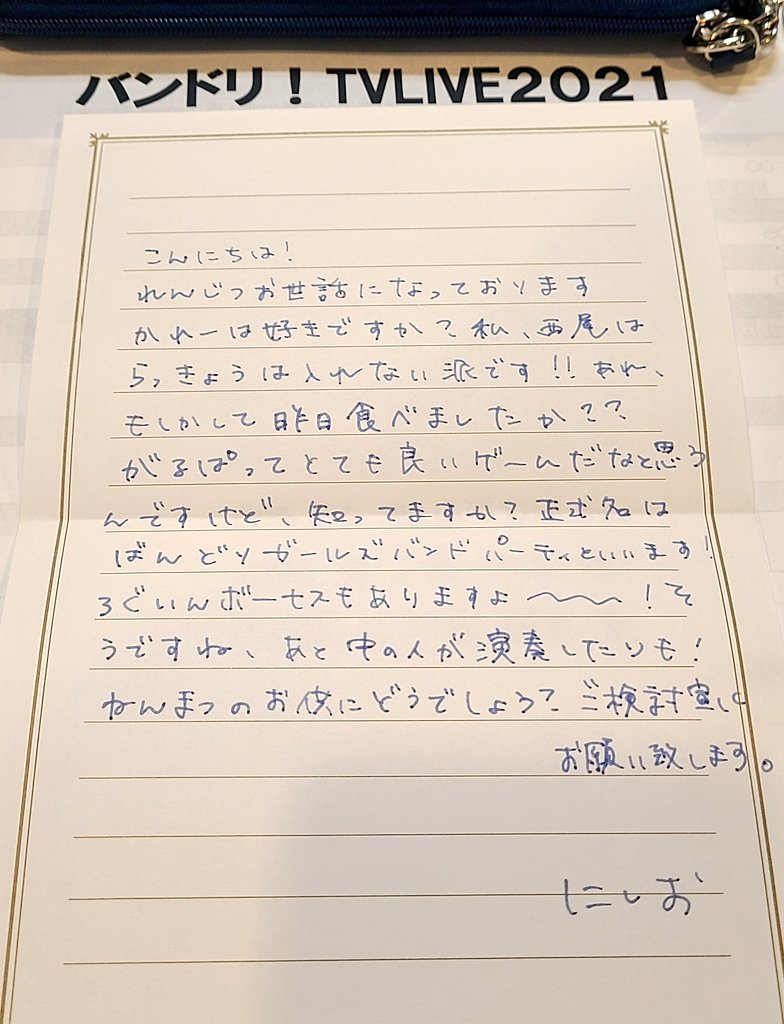 バンドリ！TVLIVE2021
こんにちは！
れんじつお世話になっております
かれーは好きですか？私、西尾は
らっきょうは入れない派です！！あれ、
もしかして昨日食べましたか？？
がるぱってとても良いゲームだなと思う
んですけど、知ってますか？正式名は
ばんどりガールズバンドパーティといいます！
ろぐいんボーナスもありますよ〜〜！そ
うですね、あと中の人が演奏したりも！
ねんまつのお供にどうでしょう？ご検討宜しく
お願い致します。
にしお